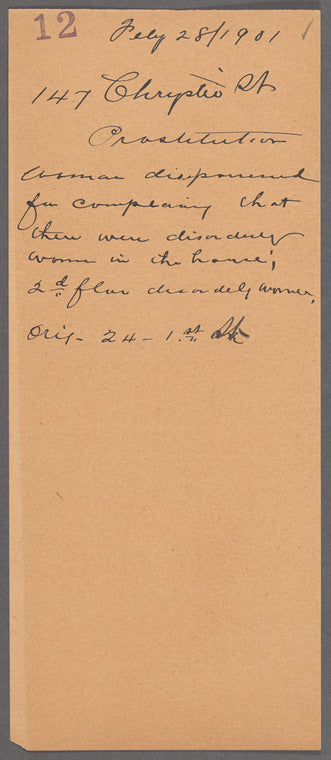 12
Feby 28/1901
147 Chrystie St
Prostitution
Woman dispossessed
for complaining that
there were disorderly
women in the house;
2d floor disorderly women,
Orig - 24 - 1st St